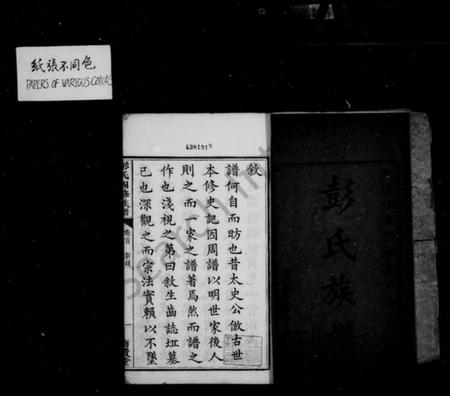 紙張不同色
PAPERS OF VARIOUS COLORS
4381919
敘
譜何自而昉也昔太史公倣古世
本修史記因周譜以明世家後人
則之而一家之譜著焉然而譜之
作也淺視之第曰敘生齒誌坵墓
已也深觀之而宗法實賴以不墜
彭氏
族譜
卷首
彭氏族譜